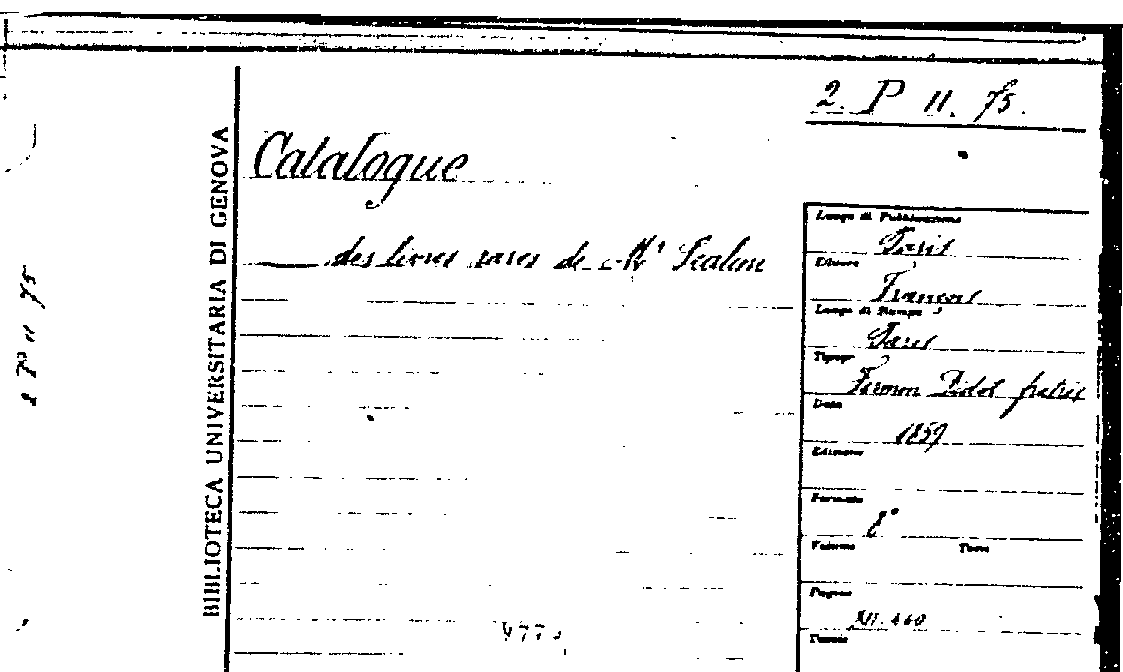 2. P 11. 75.
Catalogue
des livres rares de Mr
BIBLIOTECA UNIVERSITARIA DI GENOVA
2 P 11 75
Luogo di Pubblicazione
Paris
Editore
François
Luogo di Stampa
Paris
Tipogr.
Firmin Didot frères
Data
1859
Edizione
Formato
8°
Volume Tomo
Pagine
XII. 440